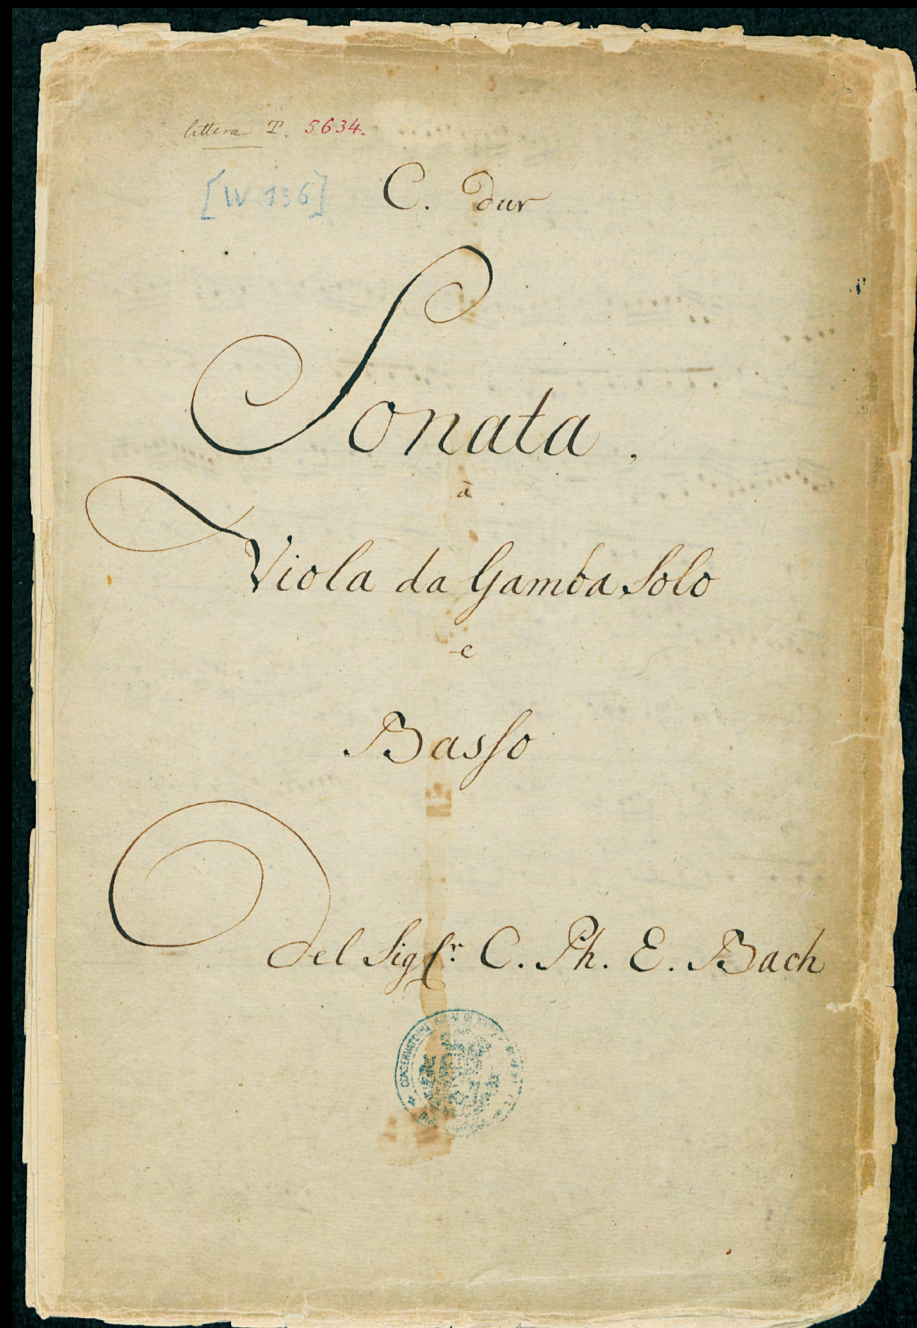 littera T. 5634.
[W 136]
C. dur
Sonata.
à
Viola da Gamba Solo
e
Basso
Del Sigr. C. Ph. E. Bach
CONSERVATOIRE ROYAL DE